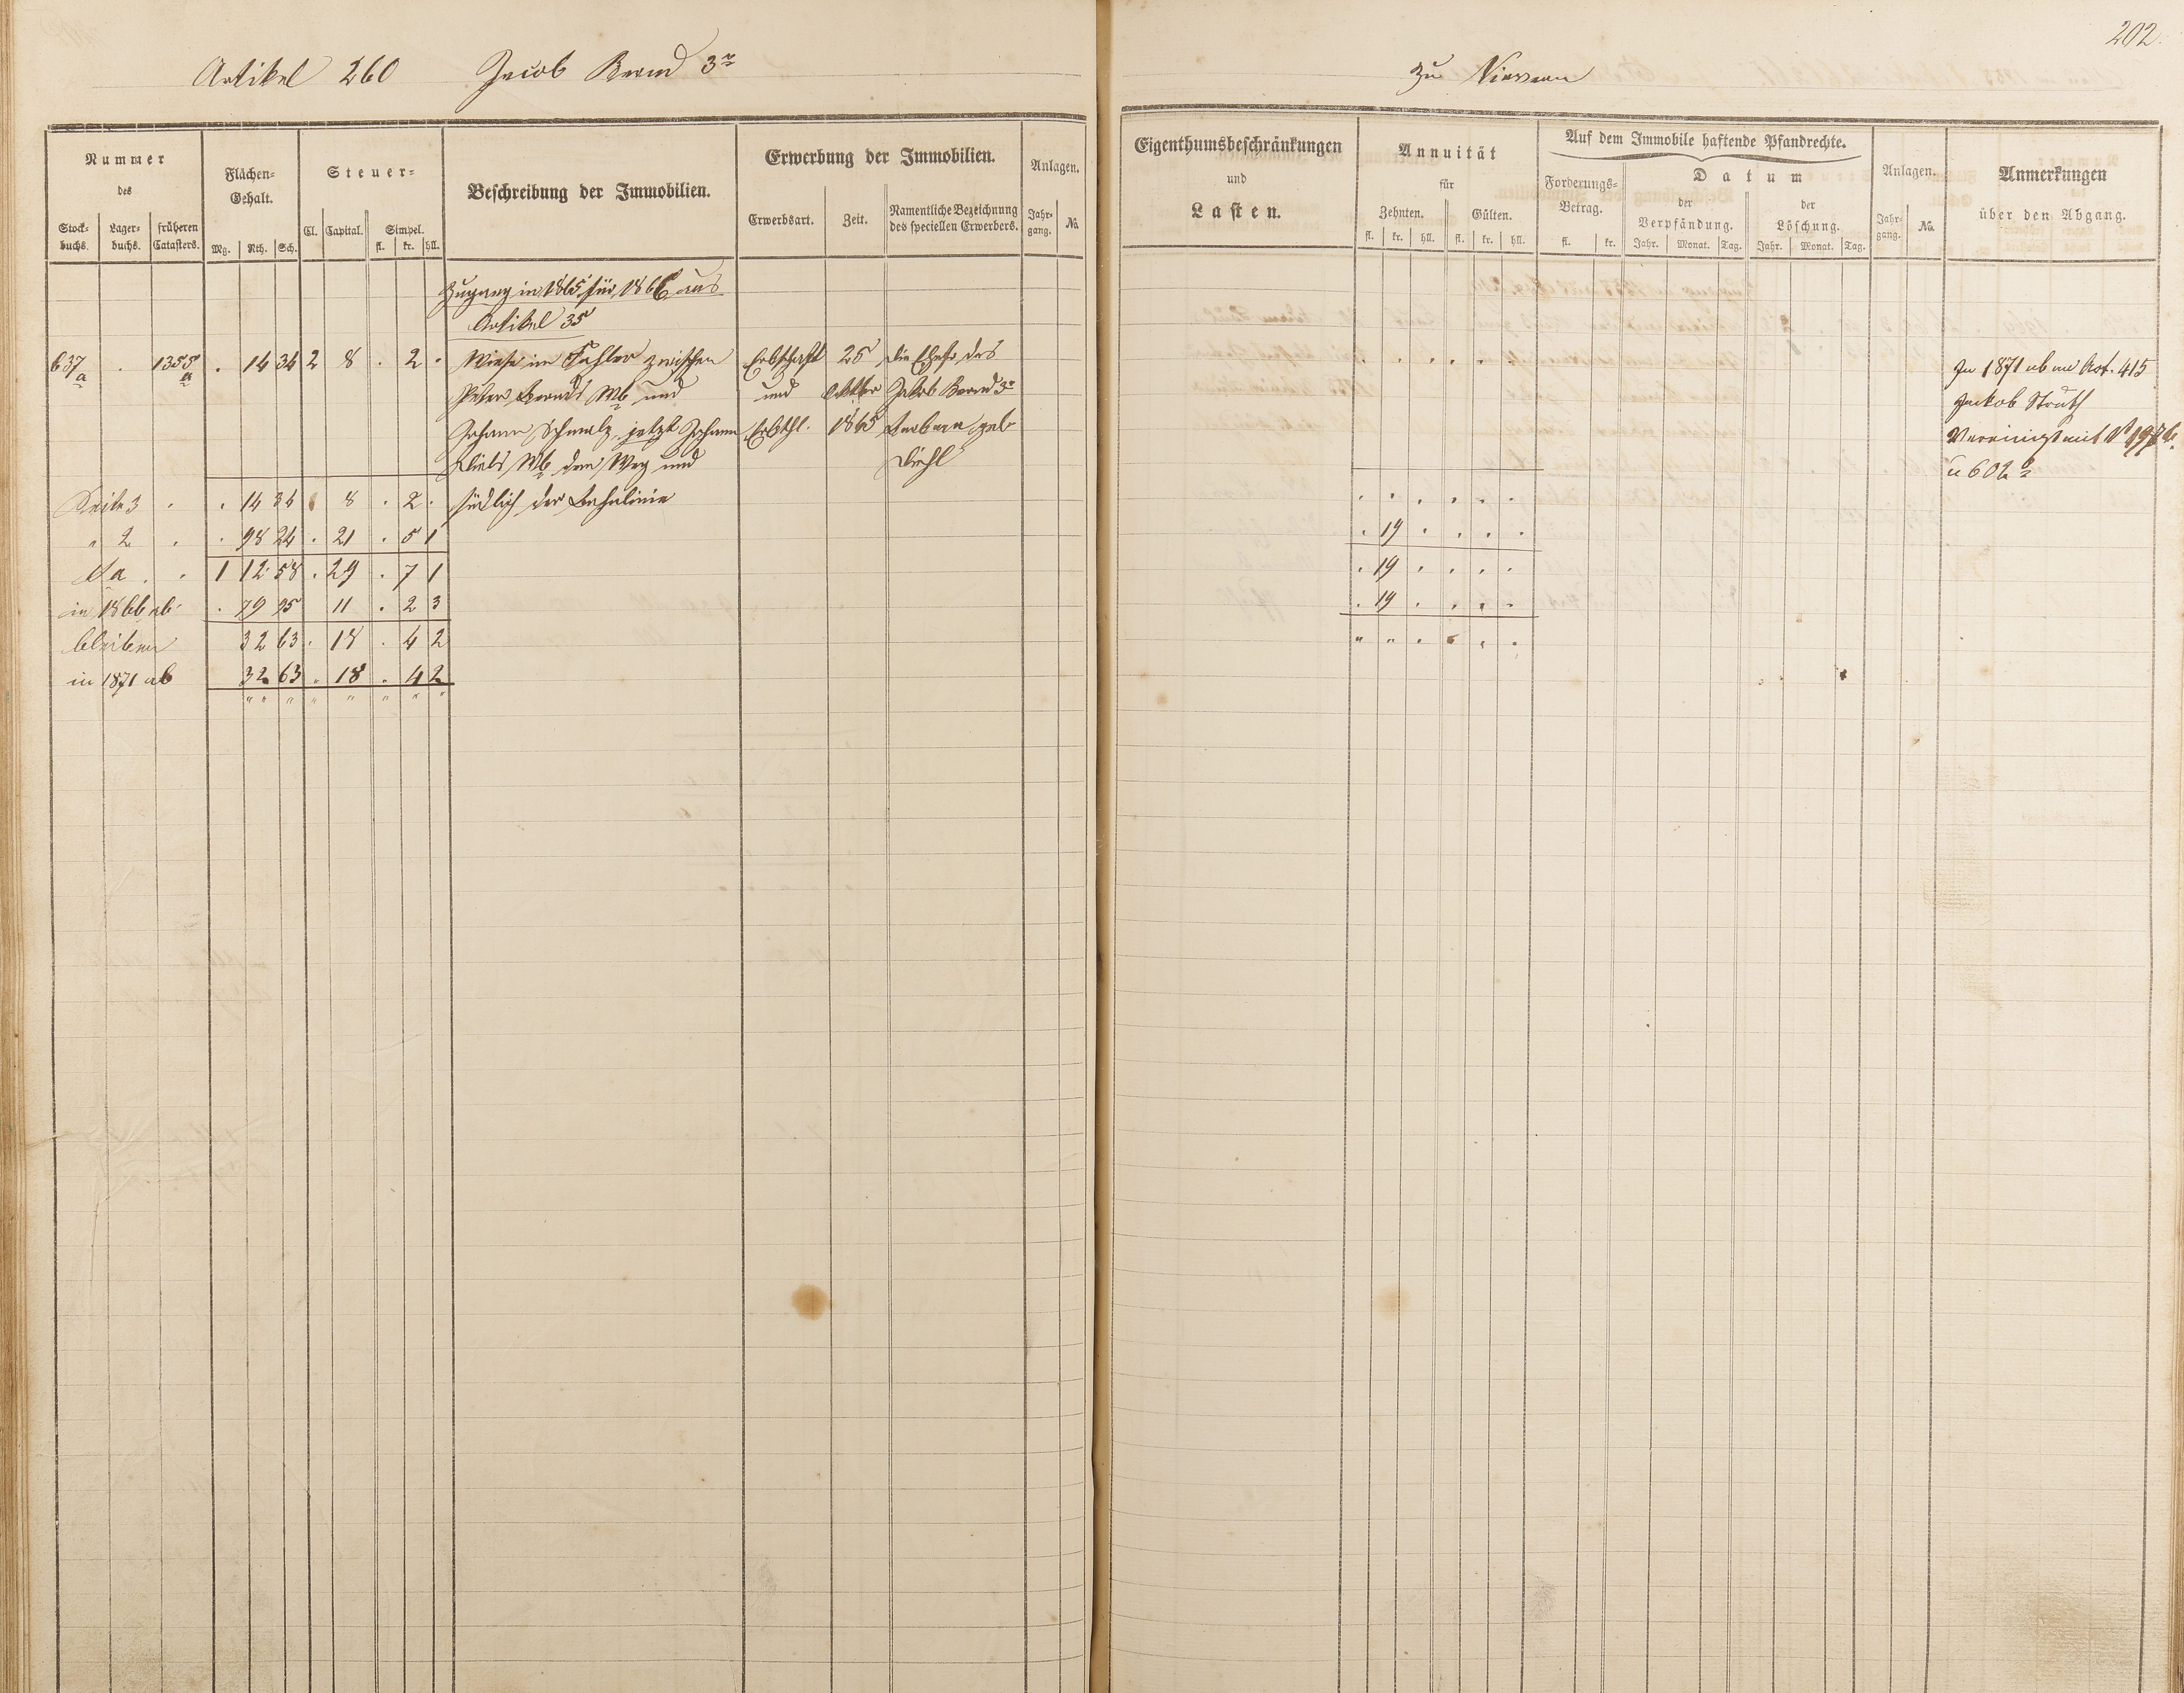 202.
Artikel 260 Jacob Bernd 3r
zu Nievern
Nummer
des
Stock-buchs. Lager-buchs. früheren Catasters.
Flächen-Gehalt.
Mg. Rth. Sch.
Steuer-
Cl. Capital. Simpel.
fl. kr. hll.
Beschreibung der Immobilien.
Erwerbung der Immobilien.
Erwerbsart. Zeit. Namentliche Bezeichnung des speciellen Erwerbers.
Anlagen.
Jahr-gang. No.
Eigenthumsbeschränkungen
und
Lasten.
Annuität
für
Zehnten. Gülten.
fl. kr. hll. fl. kr. hll.
Auf dem Immobile haftende Pfandrechte.
Forderungs-Betrag.
fl. kr.
Datum
der Verpfändung. der Löschung.
Jahr. Monat. Tag. Jahr. Monat. Tag.
Anlagen.
Jahr-gang. No.
Anmerkungen
über den Abgang.
Zugang in 1865 für 1866 aus
Artikel 35
637a . 1355a . 14 34 2 8 . 2 . Wiese im Fahler zwischen Erbschaft 25 die Ehefr. des
Peter Bernds Wb und und Oktbr Jakob Bernd 3r
Johann Schmalz jetzt Johann Erbthl. 1865 Barbara geb
Diels Wb dem Weg und Diehl
Seite 3 . . 14 34 8 . 2 . südlich der Bahnlinie
" 2 . . 98 24 . 21 . 5 1 . 19 . . . .
Sa . . 1 12 58 . 29 . 7 1 . 19 . . . .
in 1866 ab . 79 95 11 . 2 3 . 19 . . . .
bleiben 32 63 . 18 . 4 2
in 1871 ab 32 63 . 18 . 4 2
In 1871 ab an Art. 415
Jakob Struth
Vereinigt mit
u 602